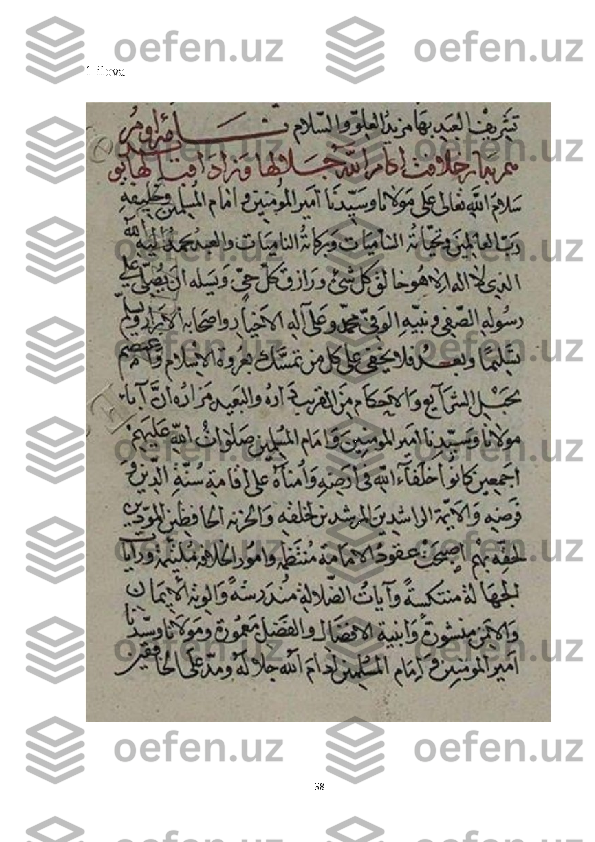 1-ilova
تشريف العبد بها مزيد العلو والسلام
سلام الله تعالى على مولانا وسيدنا امير المؤمنين وامام المسلمين وخليفة
رب العالمين وتحياته الناميات وبركاته الناميات والعبد يحمد اليه الله
الذى لا اله الا هو خالق كل شئ ورازق كل حى ويسله ان يصلى على
رسوله الصفى ونبيه الوفى محمد وعلى آله الاخيار واصحابه الابرار ويسلم
تسليما وبعد فلا يخفى على كل من تمسك بعروة الاسلام واعتصم
بحبل الشرايع والاحكام من القريبة داره والبعيد مزاره ان آباء
مولانا وسيدنا امير المومنين وامام المسلمين صلوات الله عليهم
اجمعين كانوا خلفاء الله فى ارضه وامناه على اقامة سنة الدين و
فرضه والايمة الراشدين المرشدين لخلقه والخزنة الحافظين المودين
لحقه بهم اصبحت عقود الامامة منتظمة وامور الخلافة ملتئمة ورايات
الجهالة منتكسة وآيات الضلالة مندرسة والوية الايمان
والامن منشورة وابنية الافضال والفضل معمورة ومولانا وسيدنا
امير المومنين و امام المسلمين ادام الله جلاله ومد على الخافقين
58
oefen.uz